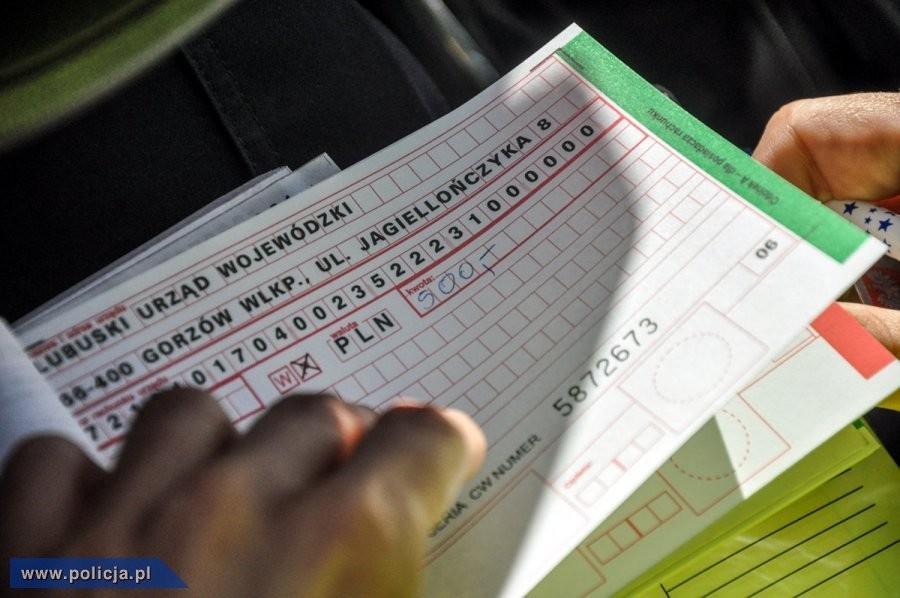 Odcinek A - dla posiadacza rachunku
LUBUSKI URZĄD WOJEWÓDZKI
66-400 GORZÓW WLKP., UL. JAGIELLOŃCZYKA 8
017040023522231000000
W X
waluta
PLN
kwota:
500,-
06
SERIA CW NUMER 5872673
Opłata:
www.policja.pl